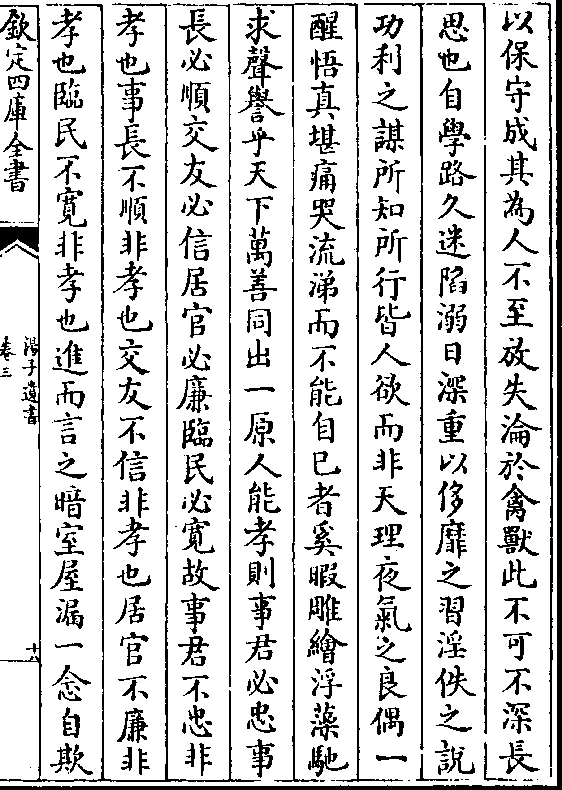 以保守成其為人不至放失淪於禽獸此不可不深長
思也自學路久迷陷溺日深重以侈靡之習淫佚之說
功利之謀所知所行皆人欲而非天理夜氣之良偶一
醒悟真堪痛哭流涕而不能自已者奚暇雕繪浮藻馳
求聲譽乎天下萬善同出一原人能孝則事君必忠事
長必順交友必信居官必廉臨民必寛故事君不忠非
孝也事長不順非孝也交友不信非孝也居官不廉非
孝也臨民不寛非孝也進而言之暗室屋漏一念自欺
欽定四庫全書
湯子遺書
卷三
十六